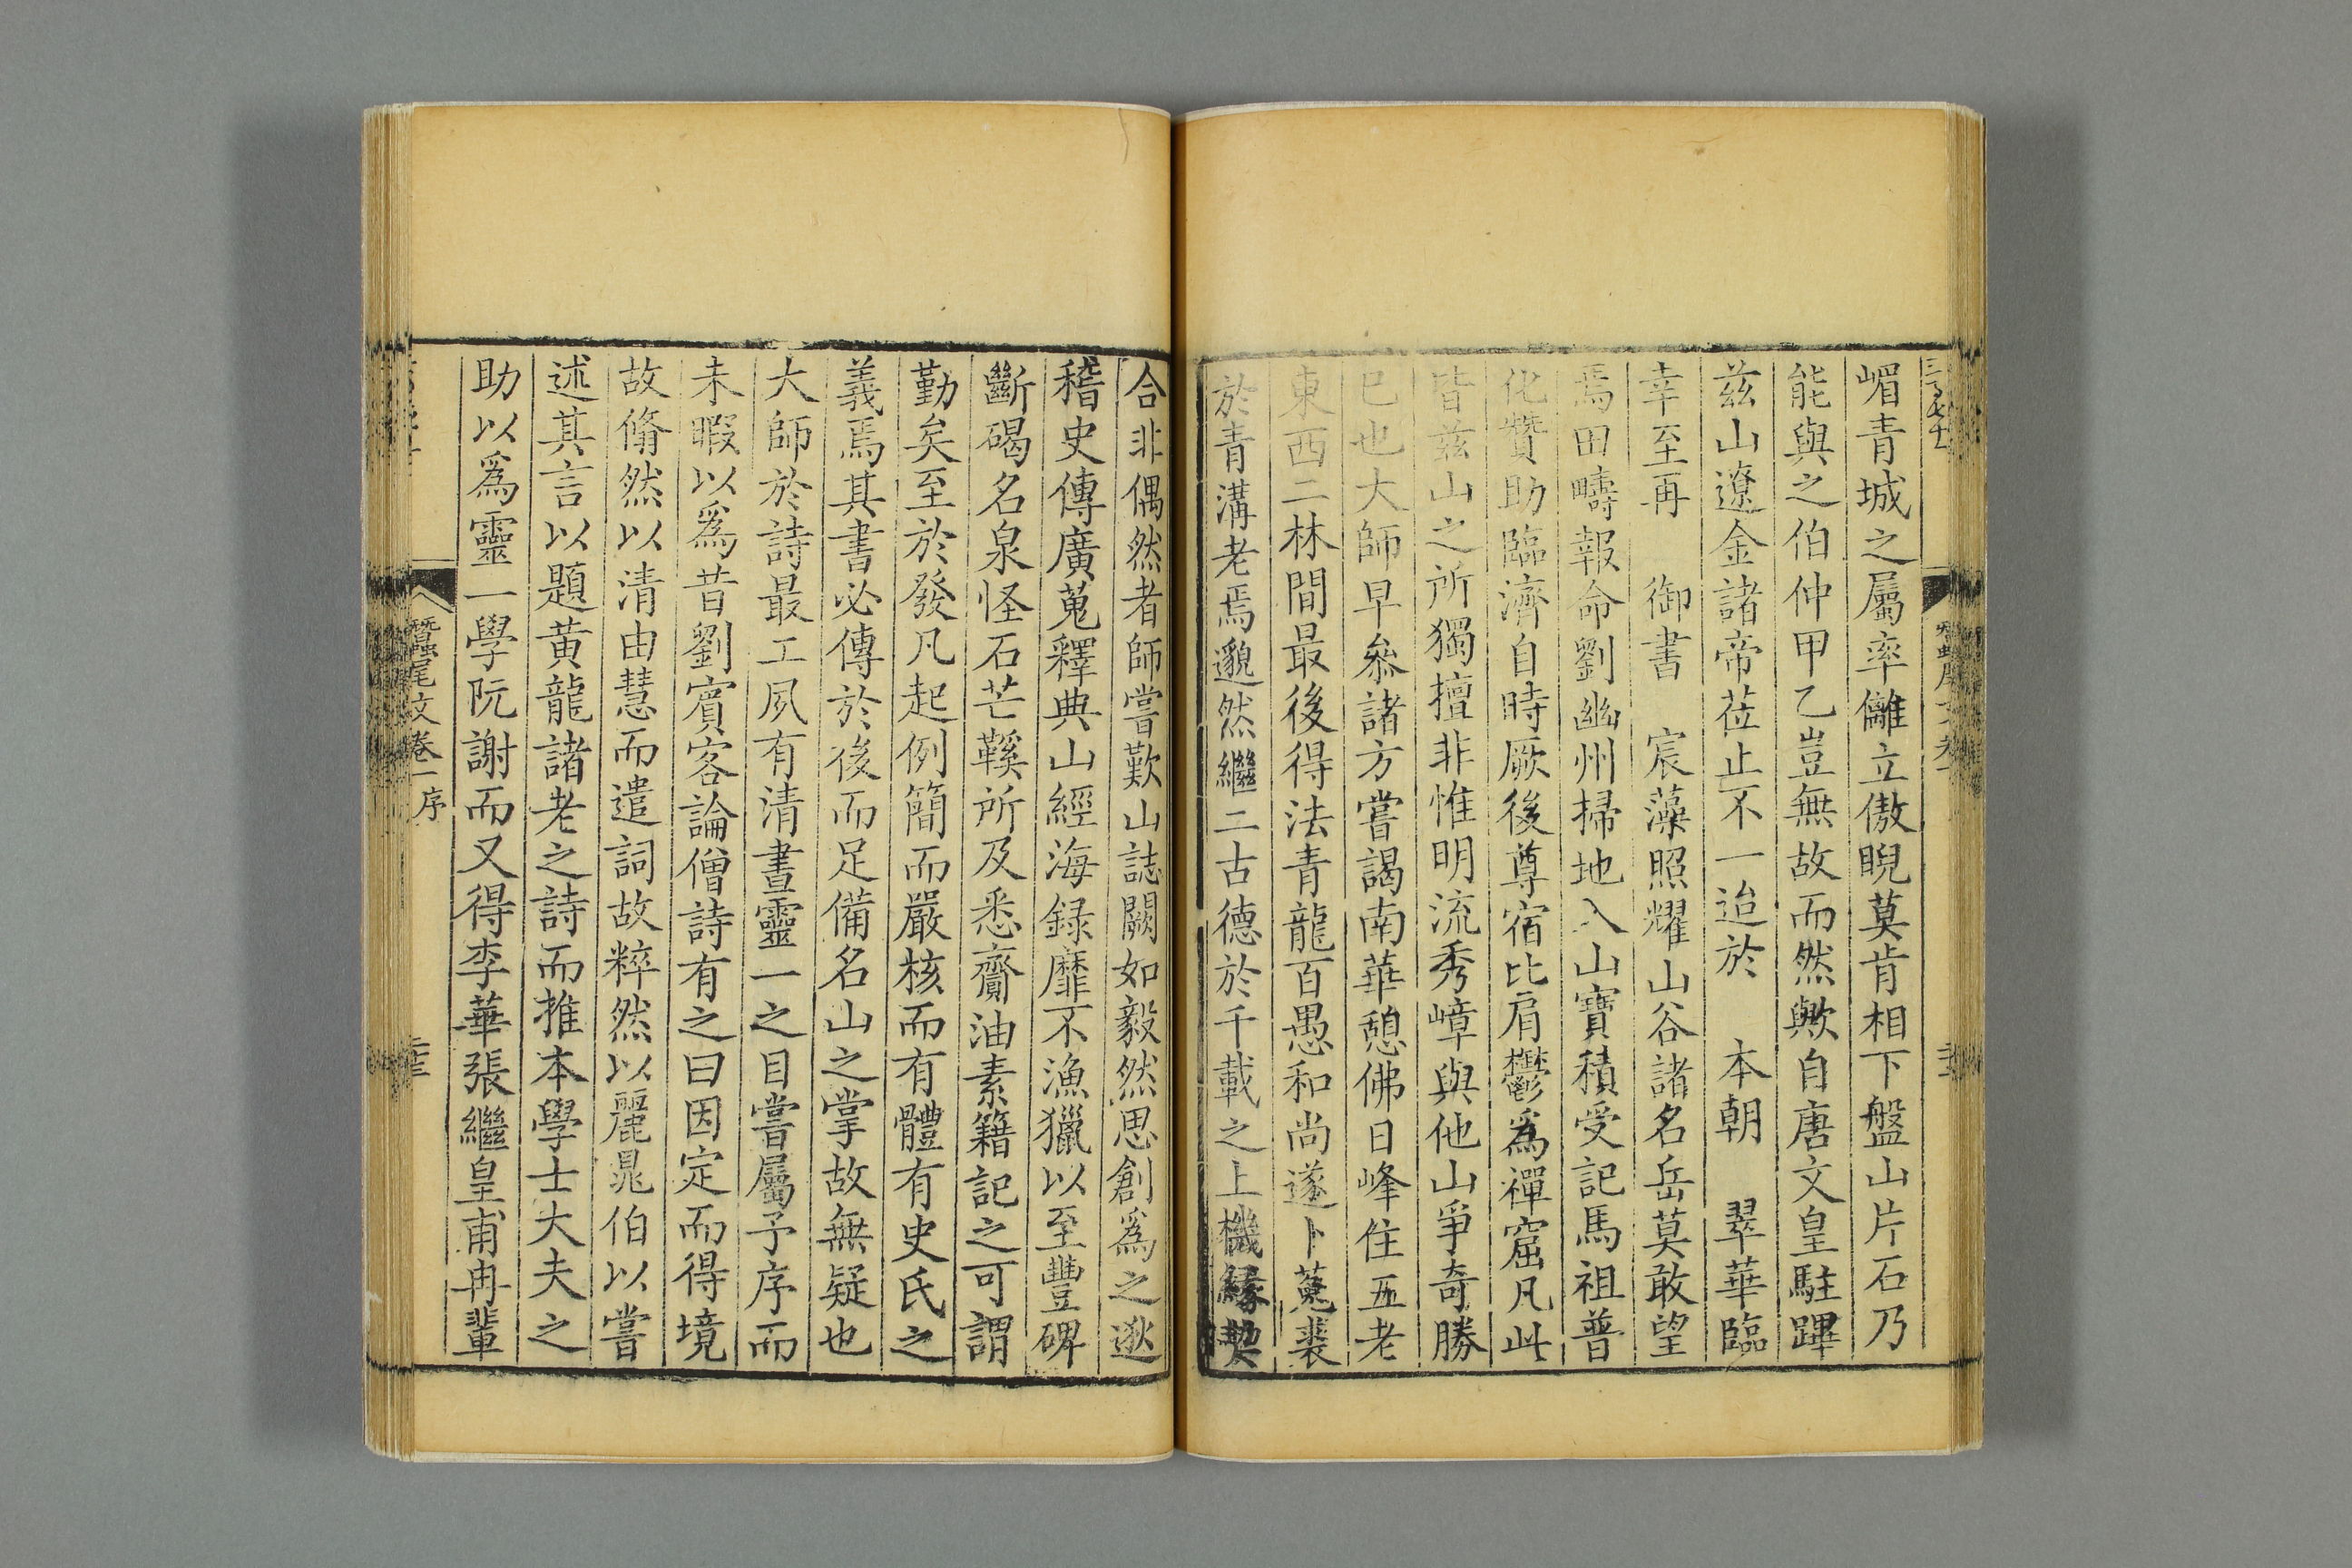 嵋青城之屬率雝立傲睨莫肯相下盤山片石乃
能與之伯仲甲乙豈無故而然歟自唐文皇駐蹕
茲山遼金諸帝莅止不一迨於 本朝 翠華臨
幸至再 御書 宸藻照耀山谷諸名岳莫敢望
焉田疇報命劉幽州掃地入山寶積受記馬祖普
化贊助臨濟自時厥後尊宿比肩鬱爲禪窟凡此
皆茲山之所獨擅非惟明流秀嶂與他山爭奇勝
已也大師早叅諸方嘗謁南華憩佛日峰住五老
東西二林間最後得法青龍百愚和尚遂卜菟裘
於青溝老焉邈然繼二古德於千載之上機緣契
合非偶然者師嘗歎山誌闕如毅然思創爲之遂
稽史傳廣蒐釋典山經海録靡不漁獵以至豐碑
斷碣名泉怪石芒鞵所及悉齎油素籍記之可謂
勤矣至於發凡起例簡而嚴核而有體有史氏之
義焉其書必傳於後而足備名山之掌故無疑也
大師於詩最工夙有清晝靈一之目嘗屬予序而
未暇以爲昔劉賓客論僧詩有之曰因定而得境
故翛然以清由慧而遣詞故粹然以麗晁伯以嘗
述其言以題黄龍諸老之詩而推本學士大夫之
助以爲靈一學阮謝而又得李華張繼皇甫冉輩
蠶尾文卷一序